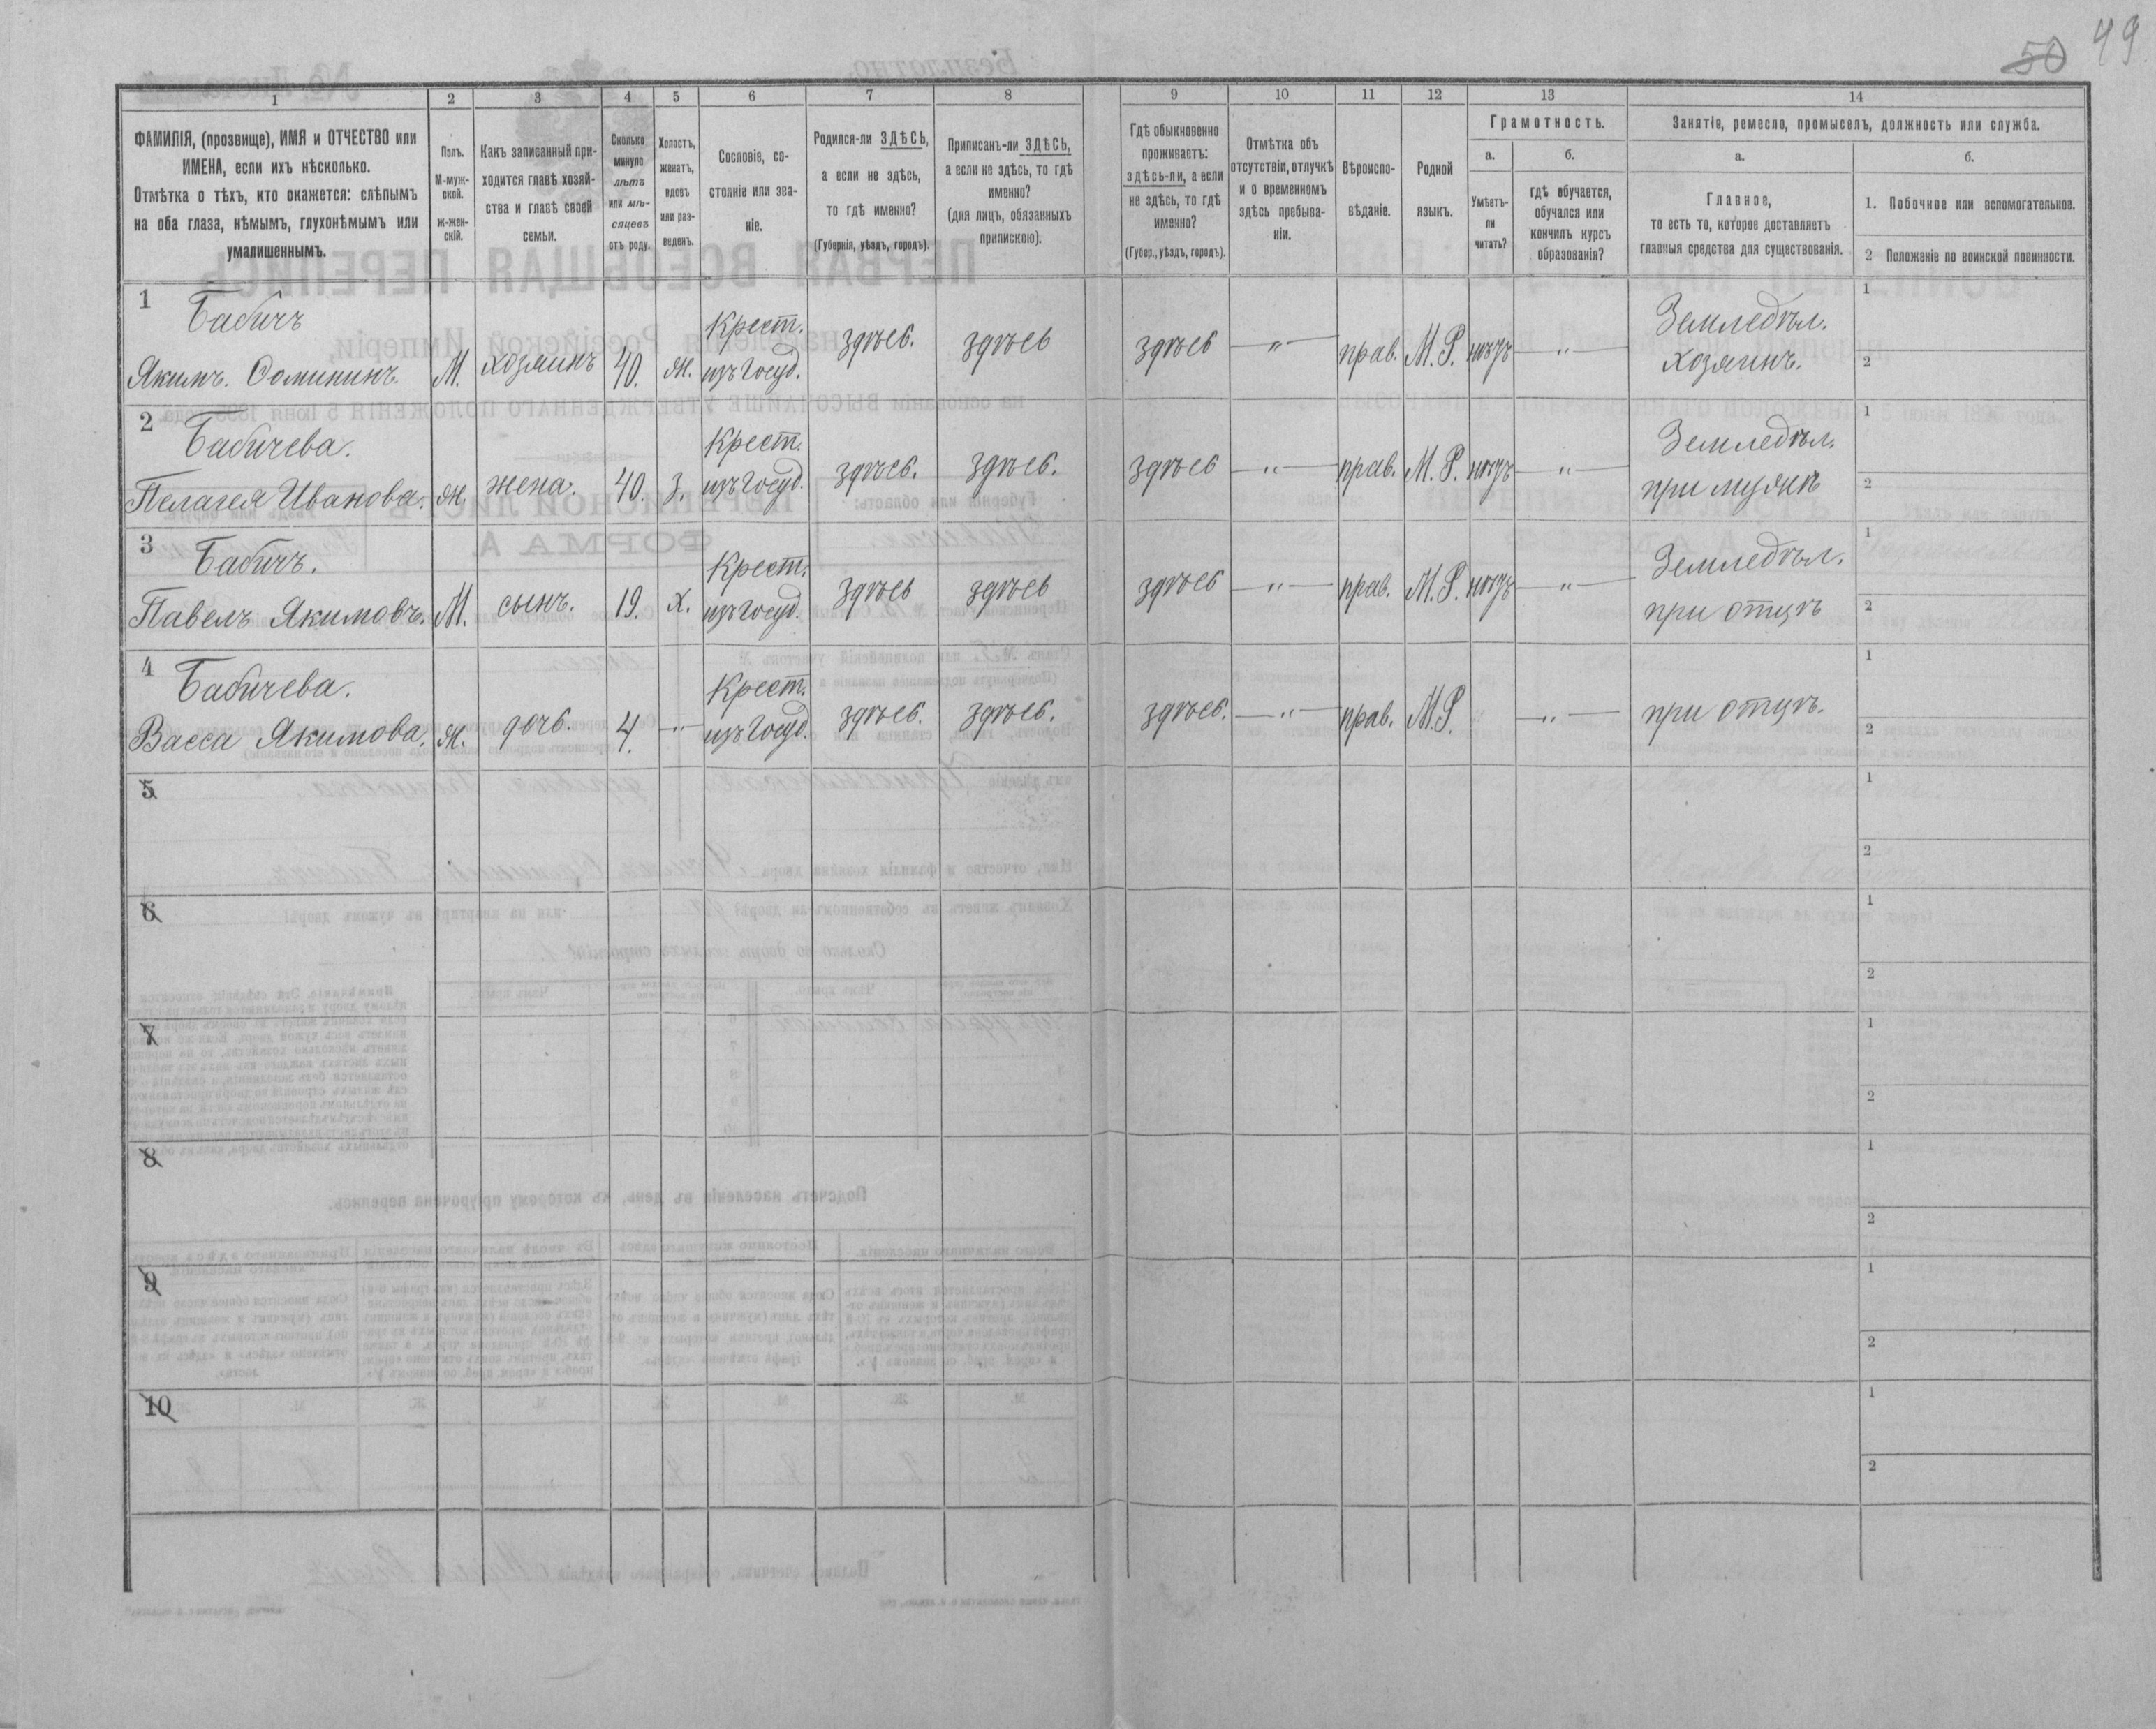 50 49
1 2 3 4 5 6 7 8 9 10 11 12 13 14
ФАМИЛІЯ, (прозвище), ИМЯ и ОТЧЕСТВО или
ИМЕНА, если ихъ нѣсколько.
Отмѣтка о тѣхъ, кто окажется: слѣпымъ
на оба глаза, нѣмымъ, глухонѣмымъ или
умалишеннымъ.
Полъ.
М-муж-
ской.
ж-жен-
скій.
Какъ записанный при-
ходится главѣ хозяй-
ства и главѣ своей
семьи.
Сколько
минуло
лѣтъ
или мѣ-
сяцевъ
отъ роду.
Холостъ,
женатъ,
вдовъ
или раз-
веденъ.
Сословіе, со-
стояніе или зва-
ніе.
Родился-ли ЗДѢСЬ,
а если не здѣсь,
то гдѣ именно?
(Губернія, уѣздъ, городъ).
Приписанъ-ли ЗДѢСЬ,
а если не здѣсь, то гдѣ
именно?
(для лицъ, обязанныхъ
припискою).
Гдѣ обыкновенно
проживаетъ:
здѣсь-ли, а если
не здѣсь, то гдѣ
именно?
(Губер., уѣздъ, городъ).
Отмѣтка объ
отсутствіи, отлучкѣ
и о временномъ
здѣсь пребыва-
ніи.
Вѣроиспо-
вѣданіе.
Родной
языкъ.
Грамотность.
а.
Умѣетъ-
ли
читать?
б.
гдѣ обучается,
обучался или
кончилъ курсъ
образованія?
Занятіе, ремесло, промыселъ, должность или служба.
а.
Главное,
то есть то, которое доставляетъ
главныя средства для существованія.
б.
1. Побочное или вспомогательное.
2 Положеніе по воинской повинности.
1 Бабичъ Крест. Земледѣл. 1
Якимъ. М. хозяинъ 40. ж. изъ госуд. здѣсь. здѣсь здѣсь — " — прав. М.Р. нѣтъ — " — хозяинъ. 2
2 Бабичева. Крест. Земледѣл. 1
Пелагея Иванова. ж. жена. 40. з. изъ госуд. здѣсь. здѣсь. здѣсь — " — прав. М.Р. нѣтъ — " — при мужѣ 2
3 Бабичъ. Крест. Земледѣл. 1
Павелъ Якимовъ. М. сынъ. 19. х. изъ госуд. здѣсь здѣсь здѣсь — " — прав. М.Р. нѣтъ — " — при отцѣ 2
4 Бабичева. Крест. 1
Васса Якимова. ж. дочь. 4. — " — изъ госуд. здѣсь. здѣсь. здѣсь. — " — прав. М.Р. " — " — при отцѣ. 2
5 1
2
6 1
2
7 1
2
8 1
2
9 1
2
10 1
2